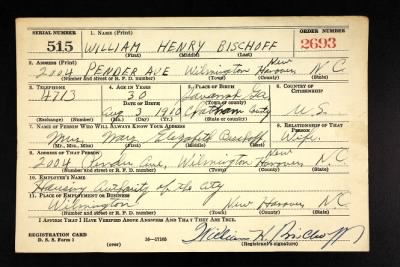 SERIAL NUMBER 1. NAME (Print) ORDER NUMBER
515 WILLIAM HENRY BISCHOFF 2693
(First) (Middle) (Last)
2. ADDRESS (Print)
2004 PENDER AVE Wilmington New Hanover N.C.
(Number and street or R. F. D. number) (Town) (County) (State)
3. TELEPHONE 4. AGE IN YEARS 5. PLACE OF BIRTH 6. COUNTRY OF CITIZENSHIP
4713 30 Savanah Ga.
DATE OF BIRTH (Town or county)
Aug 3 1910 Chatham County U.S.
(Exchange) (Number) (Mo.) (Day) (Yr.) (State or country)
7. NAME OF PERSON WHO WILL ALWAYS KNOW YOUR ADDRESS 8. RELATIONSHIP OF THAT PERSON
Mrs. Elizabeth Bischoff Wife
(Mr., Mrs., Miss) (First) (Middle) (Last)
9. ADDRESS OF THAT PERSON
2004 Pender Ave, Wilmington New Hanover N.C
(Number and street or R. F. D. number) (Town) (County) (State)
10. EMPLOYER'S NAME
Housing Authority of the City
11. PLACE OF EMPLOYMENT OR BUSINESS
Wilmington New Hanover NC
(Number and street or R. F. D. number) (Town) (County) (State)
I AFFIRM THAT I HAVE VERIFIED ABOVE ANSWERS AND THAT THEY ARE TRUE.
REGISTRATION CARD
D. S. S. Form 1 (over) 16—17105 William H. Bischoff
(Registrant's signature)